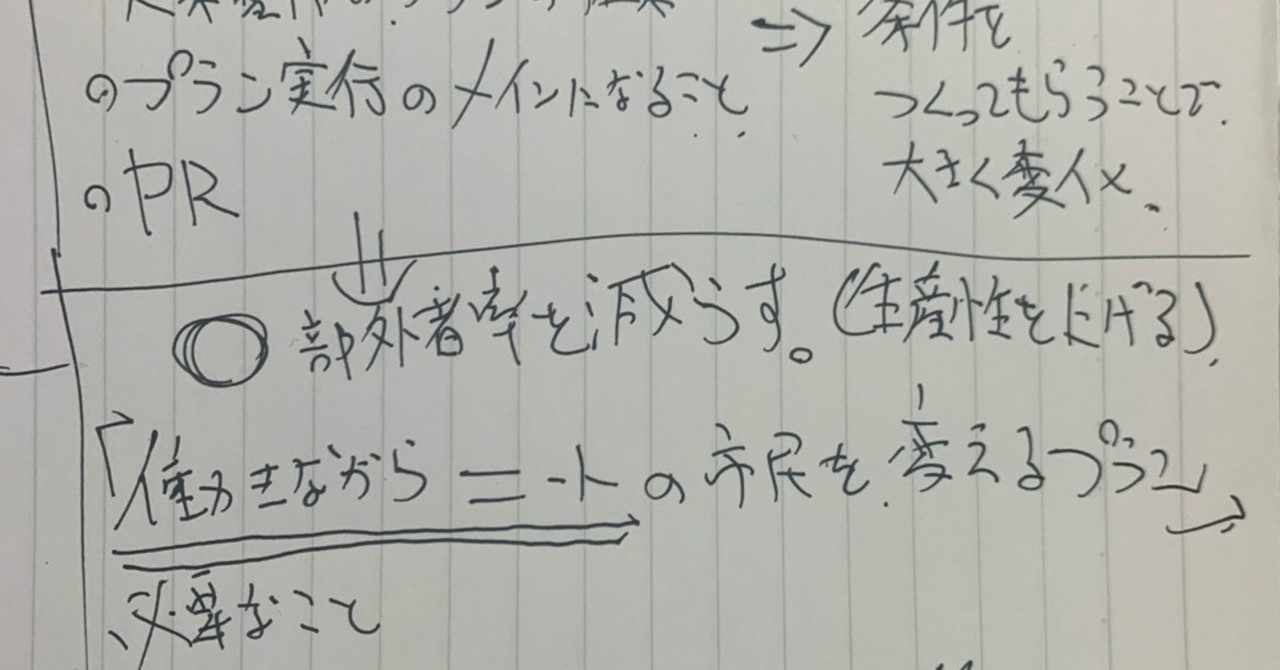 のプラン実行のメインになること
。PR
⇒ 条件を
つくってもらうことで
大きく変化。
部外者率を減らす。(生産性を上げる)
「働きながらニートの市民を変えるプラン」
必要なこと